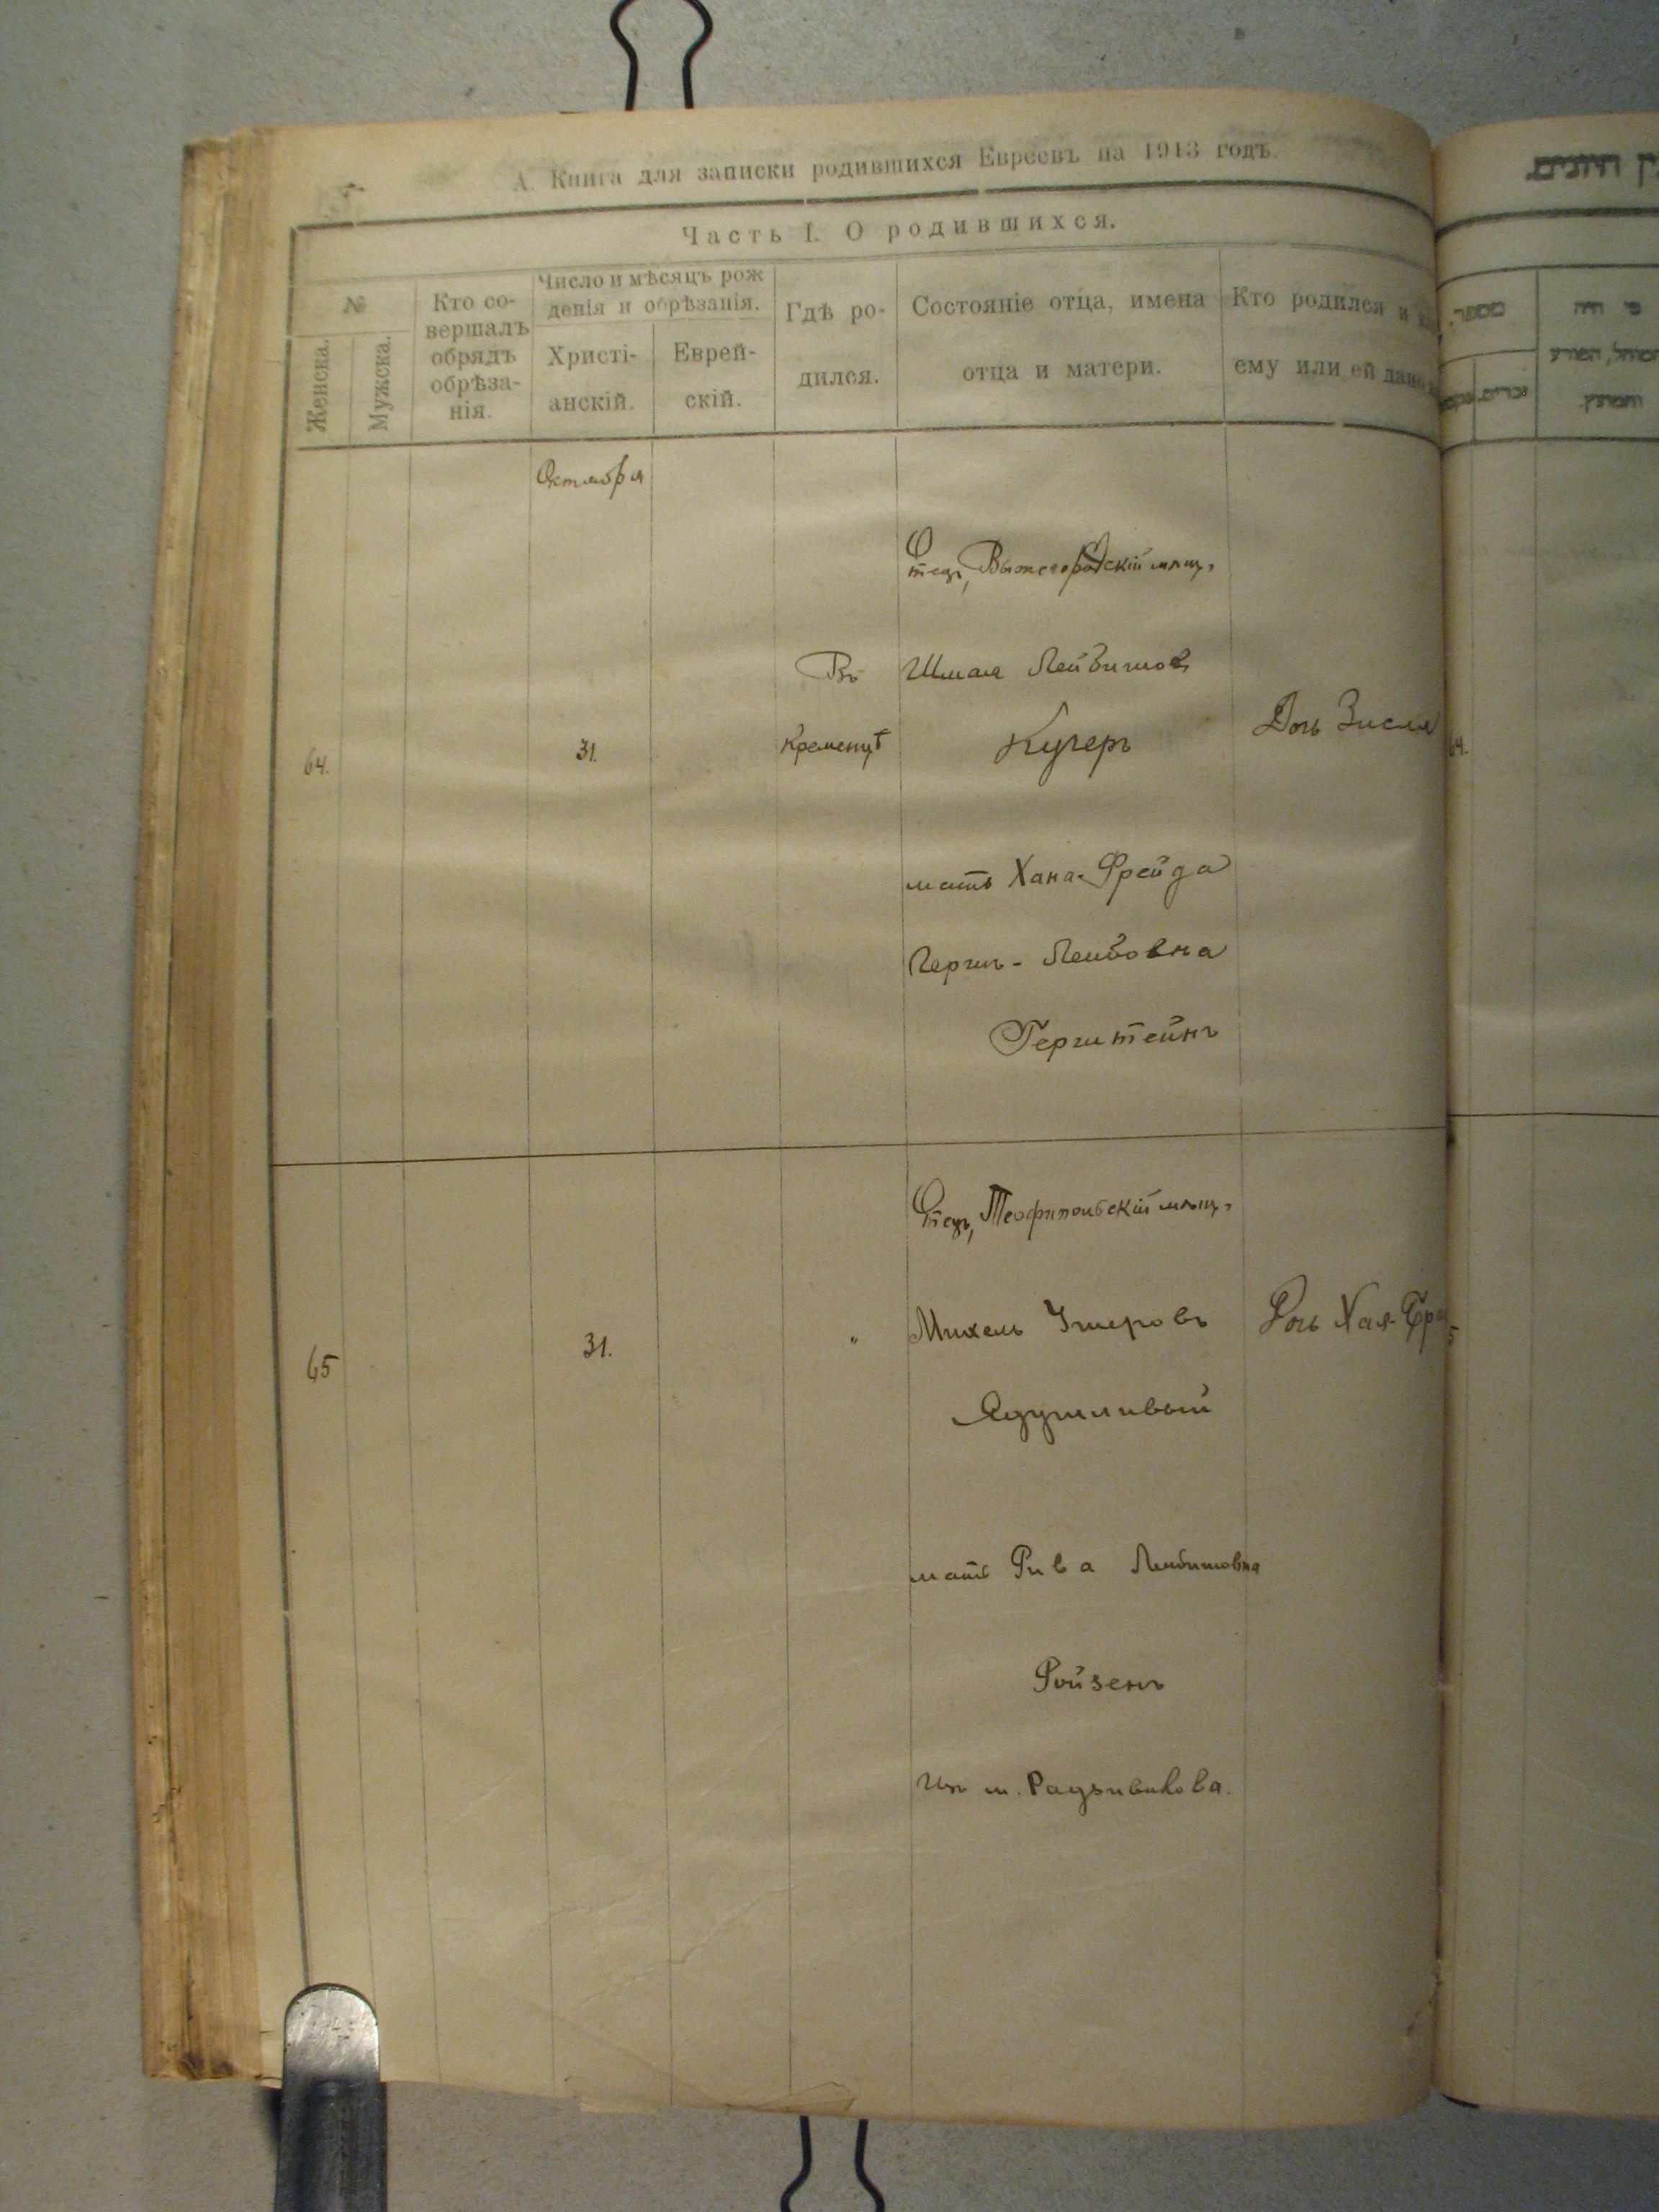 А. Книга для записки родившихся Евреевъ на 1913 годъ.
Часть I. О родившихся.
№
Женска.
Мужска.
Кто со-
вершалъ
обрядъ
обрѣза-
нія.
Число и мѣсяцъ рож
денія и обрѣзанія.
Христі-
анскій.
Еврей-
скій.
Гдѣ ро-
дился.
Состояніе отца, имена
отца и матери.
Кто родился и
ему или ей дано
Октября
64.
31.
Въ
Кременцѣ
Отецъ, Вышегородскій мѣщ.
Шмая Лейбишов
Кучеръ
мать Хана-Фрейда
Герш-Лейбовна
Герштейнъ
Дочь Зисля
65
31.
"
Отецъ, Теофипольскій мѣщ.
Михель Ушеровъ
Ядушливый
мать Рива Лейбишовна
Ройзенъ
Изъ м. Радзивилова.
Дочь Хая-